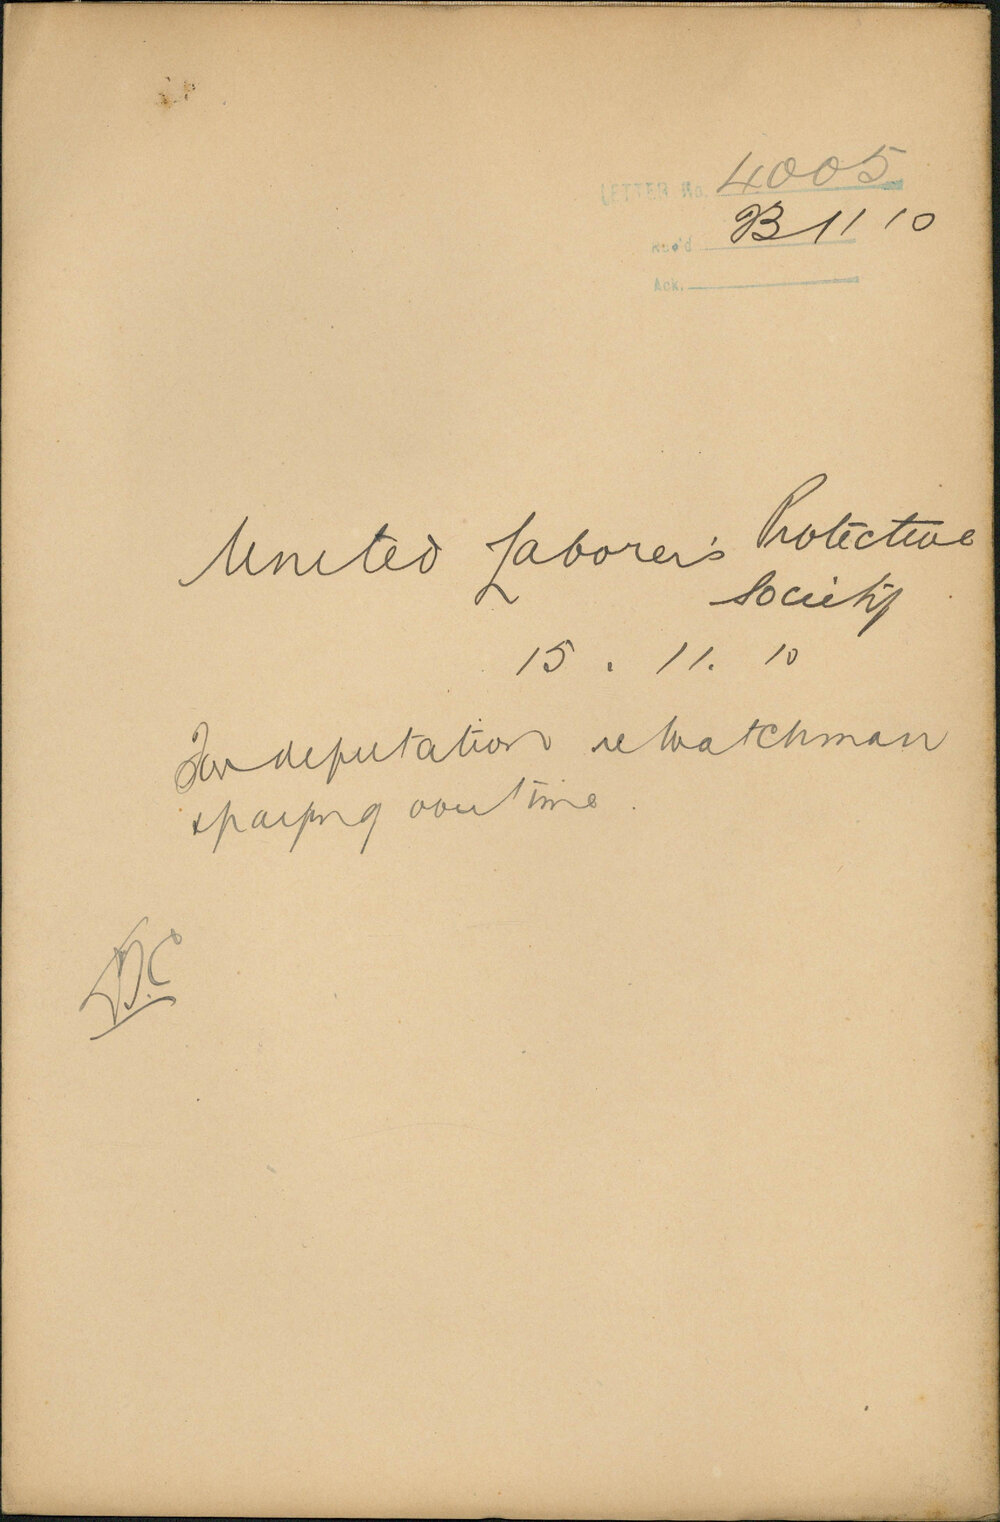 LETTER No. 4005
Rec'd B 11 10
Ack.
United Laborer's Protective
Society
15 . 11. 10
For deputation re Watchman
& paying over time.
D.C